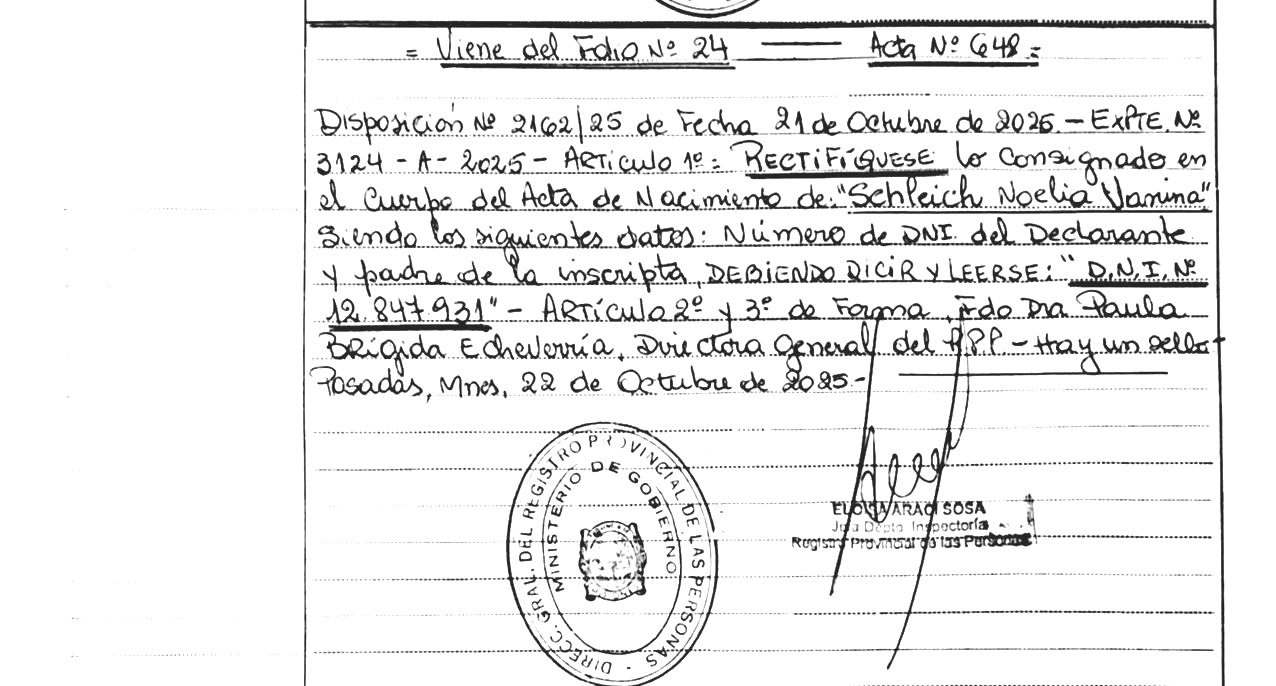 = Viene del Folio Nº 24 —— Acta Nº 648.=
Disposición Nº 2162/25 de Fecha 21 de Octubre de 2025.- EXPTE. Nº
3124 - A - 2025 - ARTÍCULO 1º: RECTIFÍQUESE lo consignado en
el Cuerpo del Acta de Nacimiento de: "Schleich Noelia Vanina"
Siendo los siguientes datos: Número de DNI. del Declarante
y padre de la inscripta, DEBIENDO DICIR Y LEERSE: "D.N.I. Nº
12.847.931" - ARTÍCULO 2º y 3º de Forma. Fdo Dra Paula
BRÍGIDA Echeverría, Directora General del RPP - Hay un sello-
Posadas, Mnes, 22 de Octubre de 2025.-
DIRECC. GRAL. DEL REGISTRO PROVINCIAL DE LAS PERSONAS -
MINISTERIO DE GOBIERNO
ELOISA ARACI SOSA
Jefa Depto. Inspectoría
Registro Provincial de las Personas